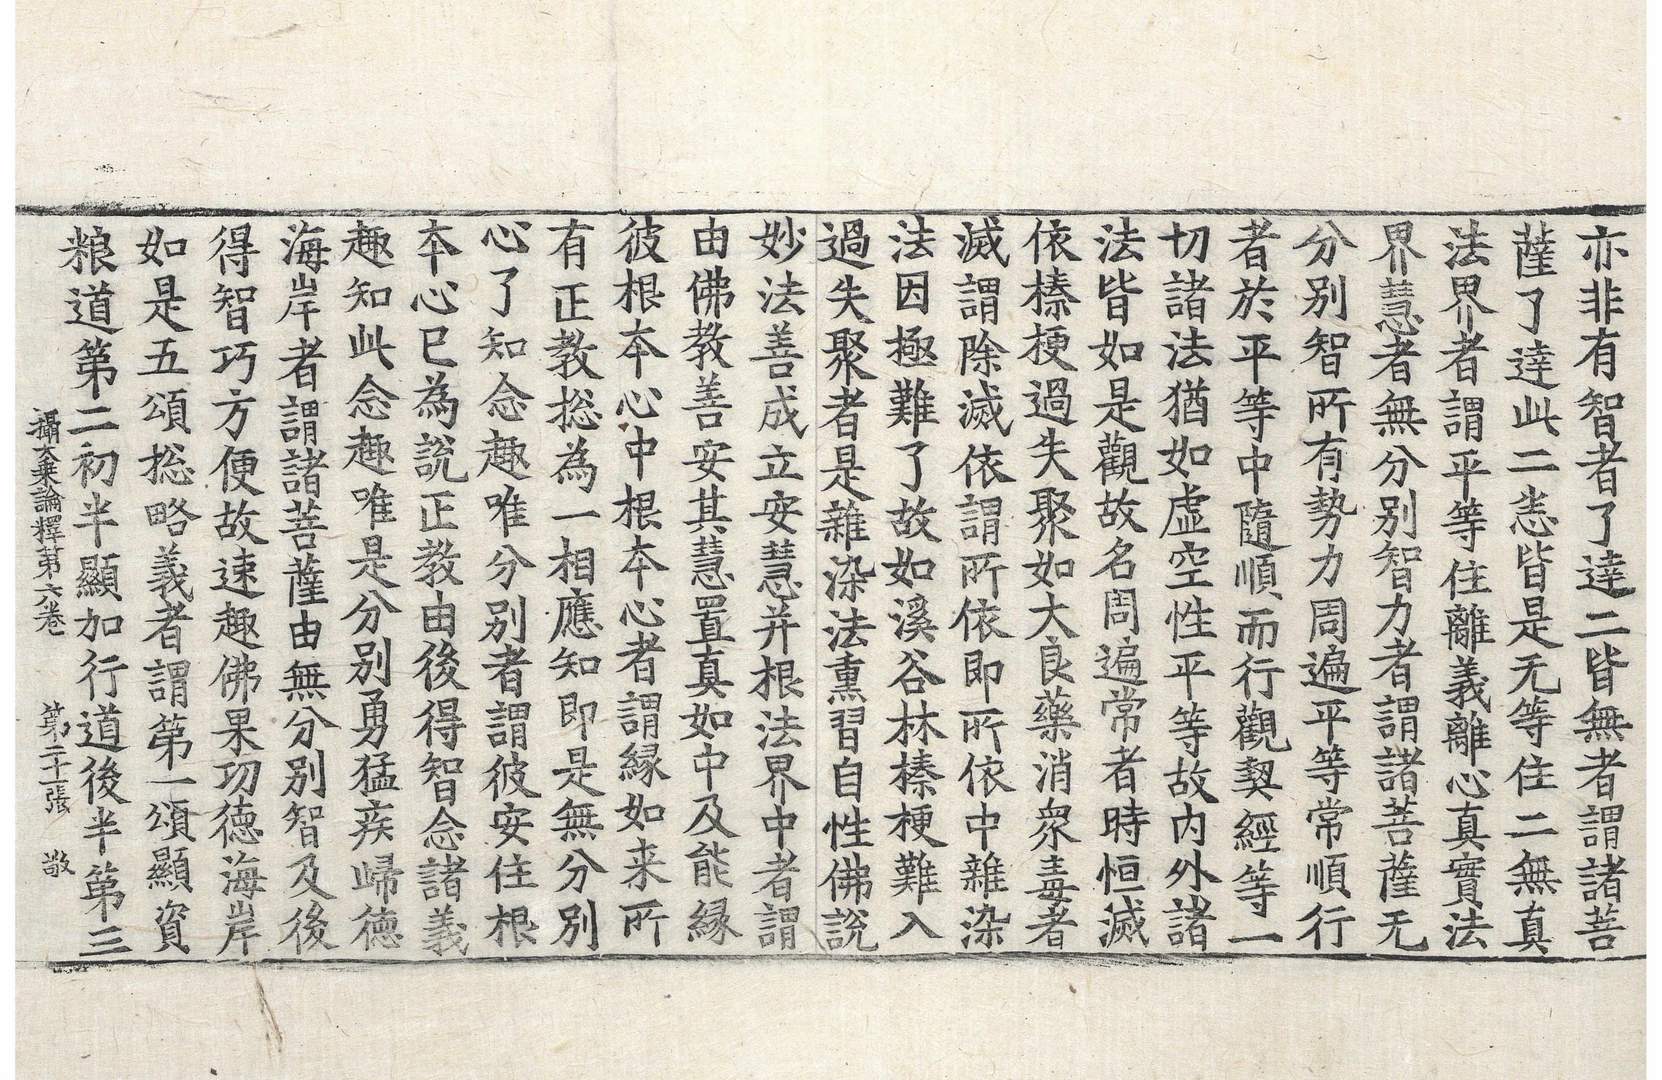 亦非有智者了達二皆無者謂諸菩
薩了達此二悉皆是无等住二無真
法界者謂平等住離義離心真實法
界慧者無分別智力者謂諸菩薩无
分別智所有勢力周遍平等常順行
者於平等中隨順而行觀契經等一
切諸法猶如虛空性平等故內外諸
法皆如是觀故名周遍常者時恒滅
依榛梗過失聚如大良藥消眾毒者
滅謂除滅依謂所依即所依中雜染
法因極難了故如溪谷林榛梗難入
過失聚者是雜染法熏習自性佛說
妙法善成立安慧并根法界中者謂
由佛教善安其慧置真如中及能緣
彼根本心中根本心者謂緣如来所
有正教揔為一相應知即是無分別
心了知念趣唯分別者謂彼安住根
本心已為說正教由後得智念諸義
趣知此念趣唯是分別勇猛疾歸德
海岸者謂諸菩薩由無分別智及後
得智巧方便故速趣佛果功德海岸
如是五頌揔略義者謂第一頌顯資
粮道第二初半顯加行道後半第三
攝大乘論釋第六卷　第二十一張　敬